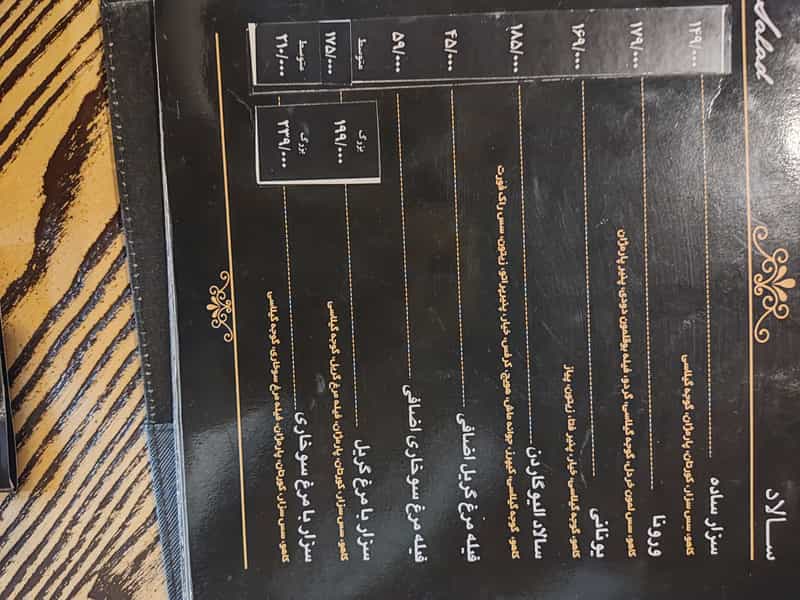 Salad
سالاد
سزار ساده ۱۴۹/۰۰۰
کاهو، سس سزار، کورتان، پارمژان، گوجه گیلاسی
ورونا ۱۷۹/۰۰۰
کاهو، سس لمون خردل، گوجه گیلاسی، گردو، فیله بوقلمون دودی، پنیر پارمژان
یونانی ۱۶۹/۰۰۰
کاهو، گوجه گیلاسی، خیار، پنیر فتا، زیتون، پیاز
سالاد الیو گاردن ۱۸۵/۰۰۰
کاهو، گوجه گیلاسی، جوانه ماش، هویج، کرفس، خیار، زیتون، سس
فیله مرغ گریل اضافی ۴۵/۰۰۰
فیله مرغ سوخاری اضافی ۵۹/۰۰۰
سزار با مرغ گریل بزرگ ۱۹۹/۰۰۰ متوسط ۱۷۵/۰۰۰
کاهو، سس سزار، کورتان، پارمژان، فیله مرغ گریل، گوجه گیلاسی
سزار با مرغ سوخاری بزرگ ۲۳۹/۰۰۰ متوسط ۲۱۰/۰۰۰
کاهو، سس سزار، کورتان، پارمژان، فیله مرغ سوخاری، گوجه گیلاسی